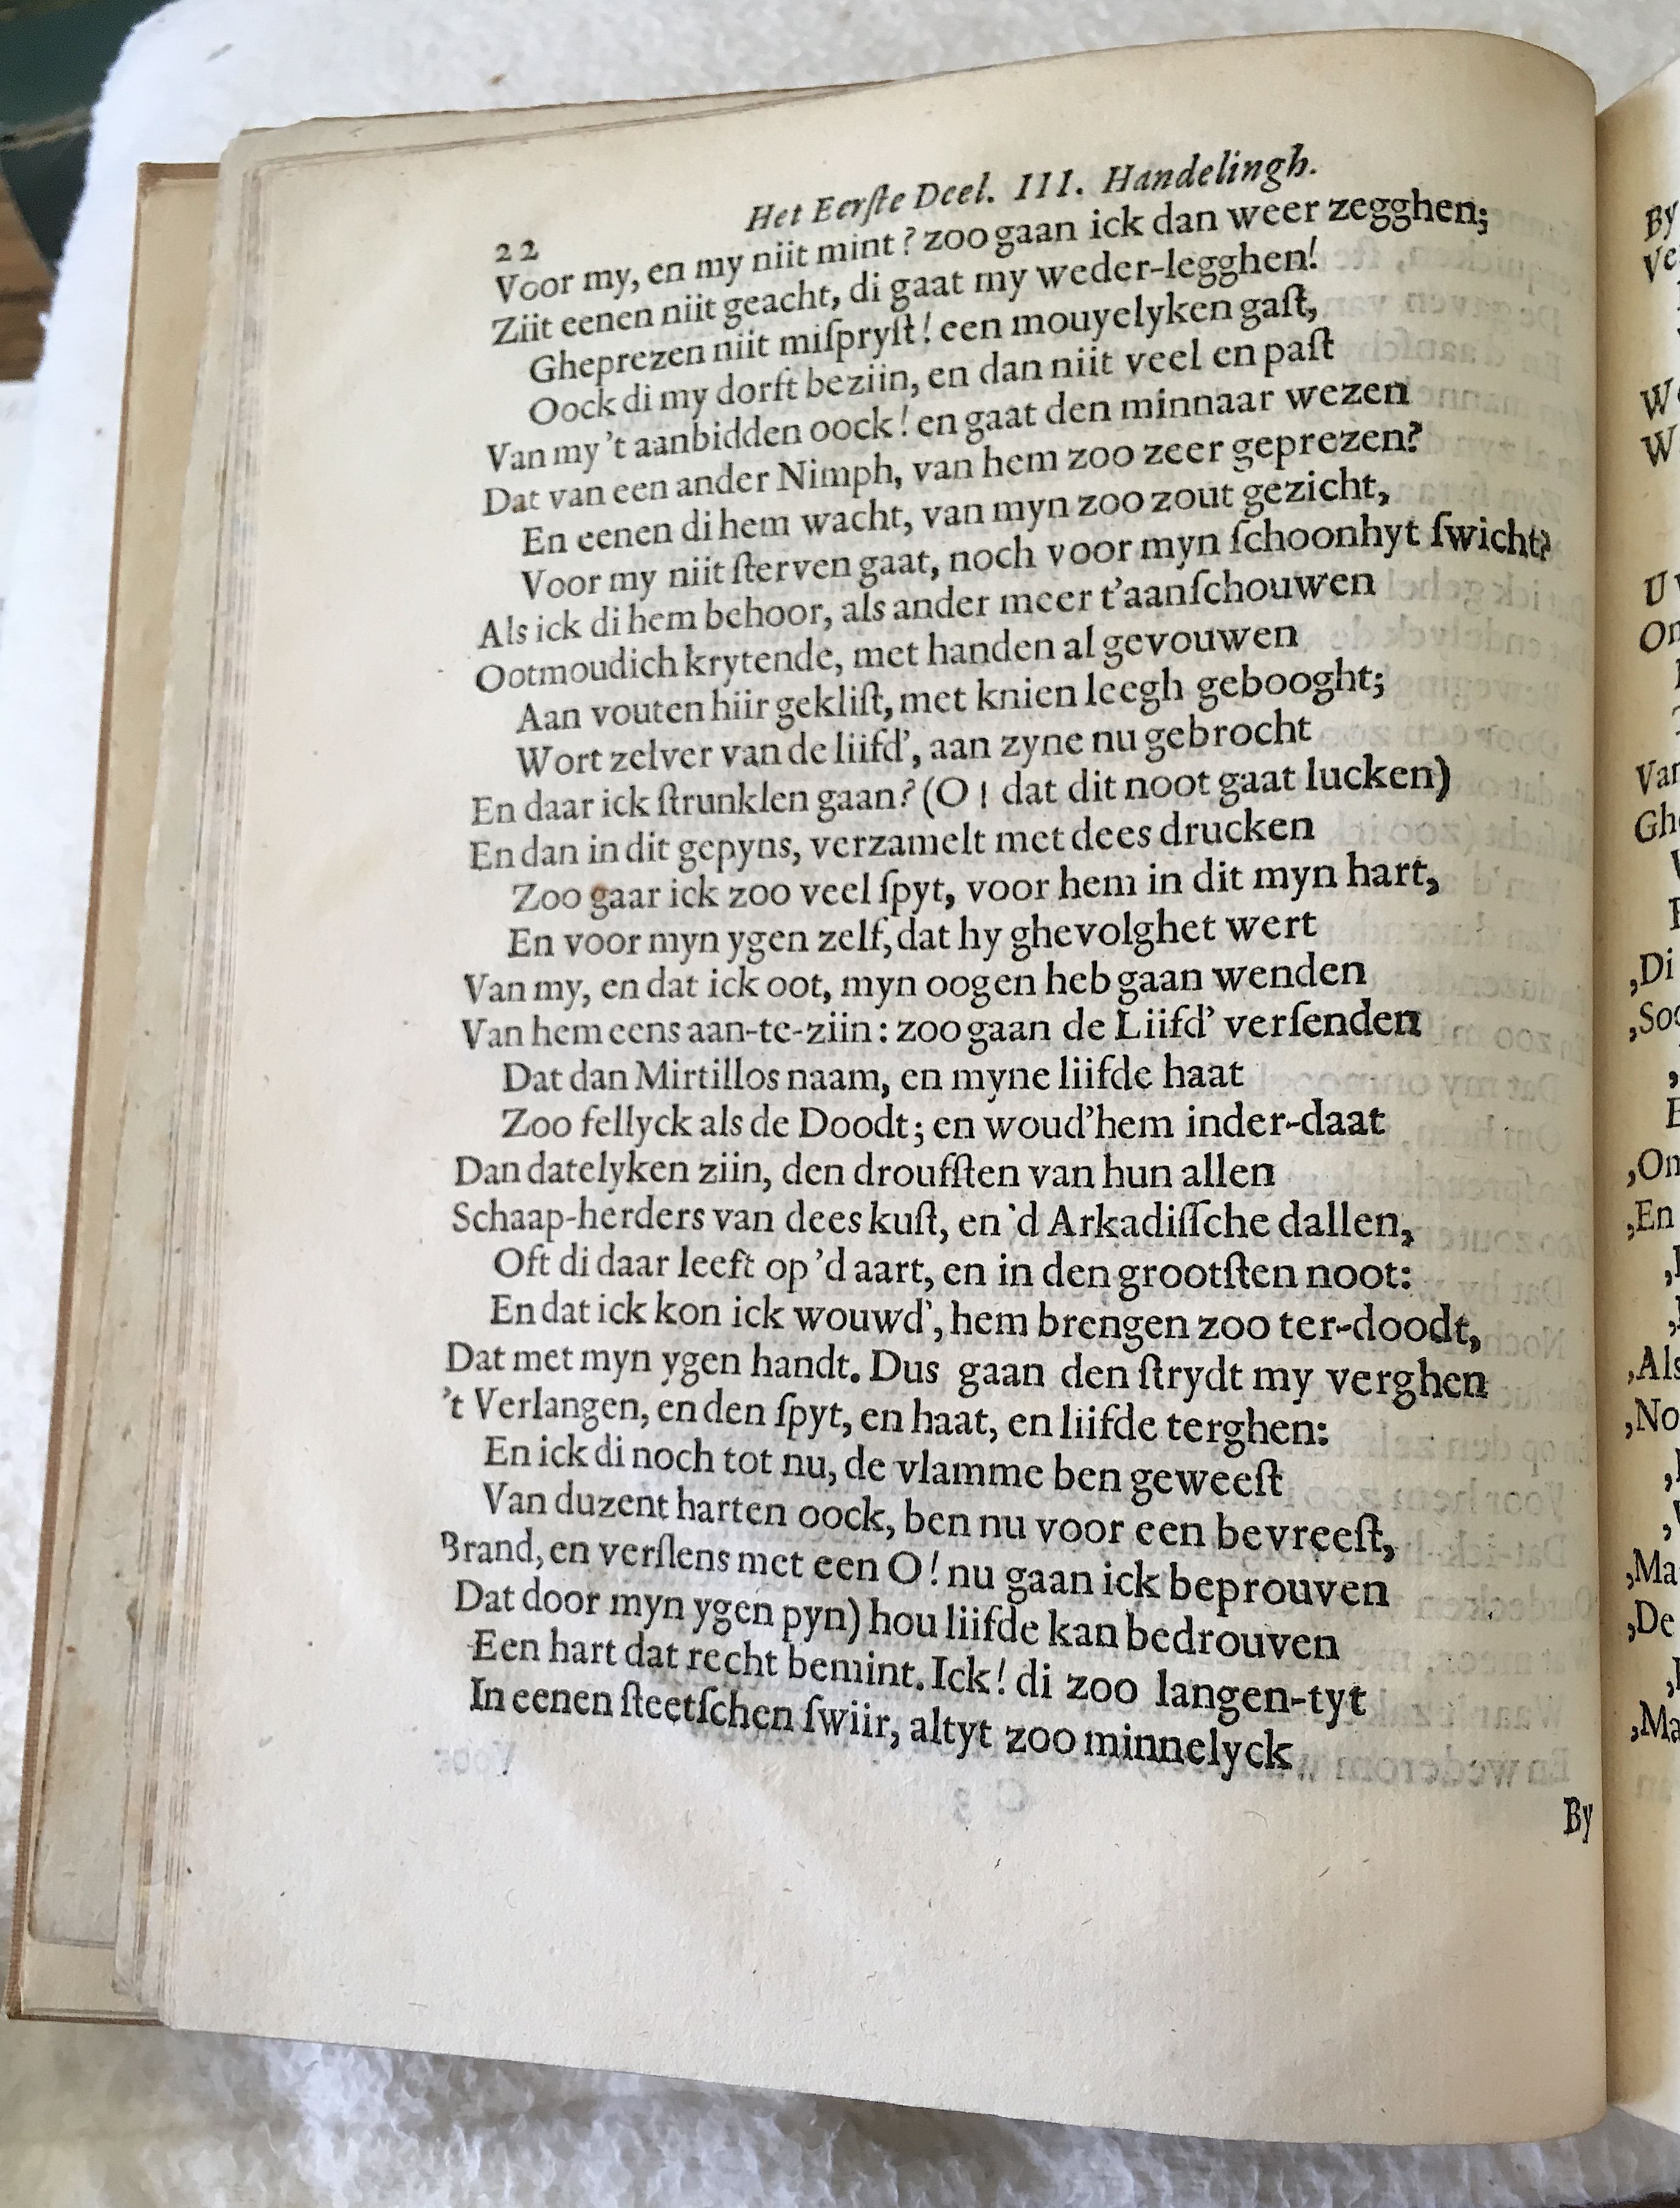 22 Het Eerſte Deel. III. Handelingh.
Voor my, en my niit mint? zoo gaan ick dan weer zegghen;
Ziit eenen niit geacht, di gaat my weder-legghen!
Gheprezen niit miſpryſt! een mouyelyken gaſt,
Oock di my dorft beziin, en dan niit veel en paſt
Van my 't aanbidden oock! en gaat den minnaar wezen
Dat van een ander Nimph, van hem zoo zeer geprezen?
En eenen di hem wacht, van myn zoo zout gezicht,
Voor my niit ſterven gaat, noch voor myn ſchoonhyt ſwicht?
Als ick di hem behoor, als ander meer t'aanſchouwen
Ootmoudich krytende, met handen al gevouwen
Aan vouten hiir gekliſt, met knien leegh gebooght;
Wort zelver van de liifd', aan zyne nu gebrocht
En daar ick ſtrunklen gaan? (O! dat dit noot gaat lucken)
En dan in dit gepyns, verzamelt met dees drucken
Zoo gaar ick zoo veel ſpyt, voor hem in dit myn hart,
En voor myn ygen zelf, dat hy ghevolghet wert
Van my, en dat ick oot, myn oogen heb gaan wenden
Van hem eens aan-te-ziin: zoo gaan de Liifd' verſenden
Dat dan Mirtillos naam, en myne liifde haat
Zoo fellyck als de Doodt; en woud'hem inder-daat
Dan datelyken ziin, den droufſten van hun allen
Schaap-herders van dees kuſt, en 'd Arkadiſſche dallen,
Oft di daar leeft op 'd aart, en in den grootſten noot:
En dat ick kon ick wouwd', hem brengen zoo ter-doodt,
Dat met myn ygen handt. Dus gaan den ſtrydt my verghen
't Verlangen, en den ſpyt, en haat, en liifde terghen:
En ick di noch tot nu, de vlamme ben geweeſt
Van duzent harten oock, ben nu voor een bevreeſt,
Brand, en verſlens met een O! nu gaan ick beprouven
Dat door myn ygen pyn) hou liifde kan bedrouven
Een hart dat recht bemint. Ick! di zoo langen-tyt
In eenen ſteetſchen ſwiir, altyt zoo minnelyck
By
By
Ve
We
W
Van
Gh
,Di
,Soo
,On
,En
,Als
,No
,Ma
,De
,Ma